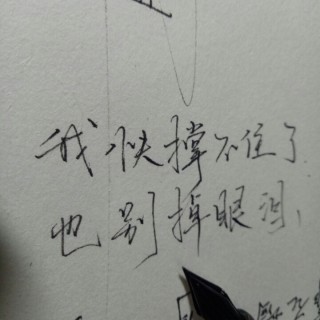 我快撑不住了
也别掉眼泪、